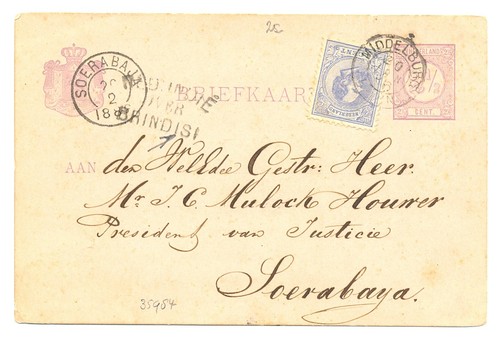 25
SOERABAJA
2
188
O. INDIE
OVER
BRINDISI
BRIEFKAART
CENT
MIDDELBURG
CENT.
1
AAN den WelEdele Gestr: Heer.
Mr. J. C. Mulock Houwer
President van Justicie
Soerabaya.
35954